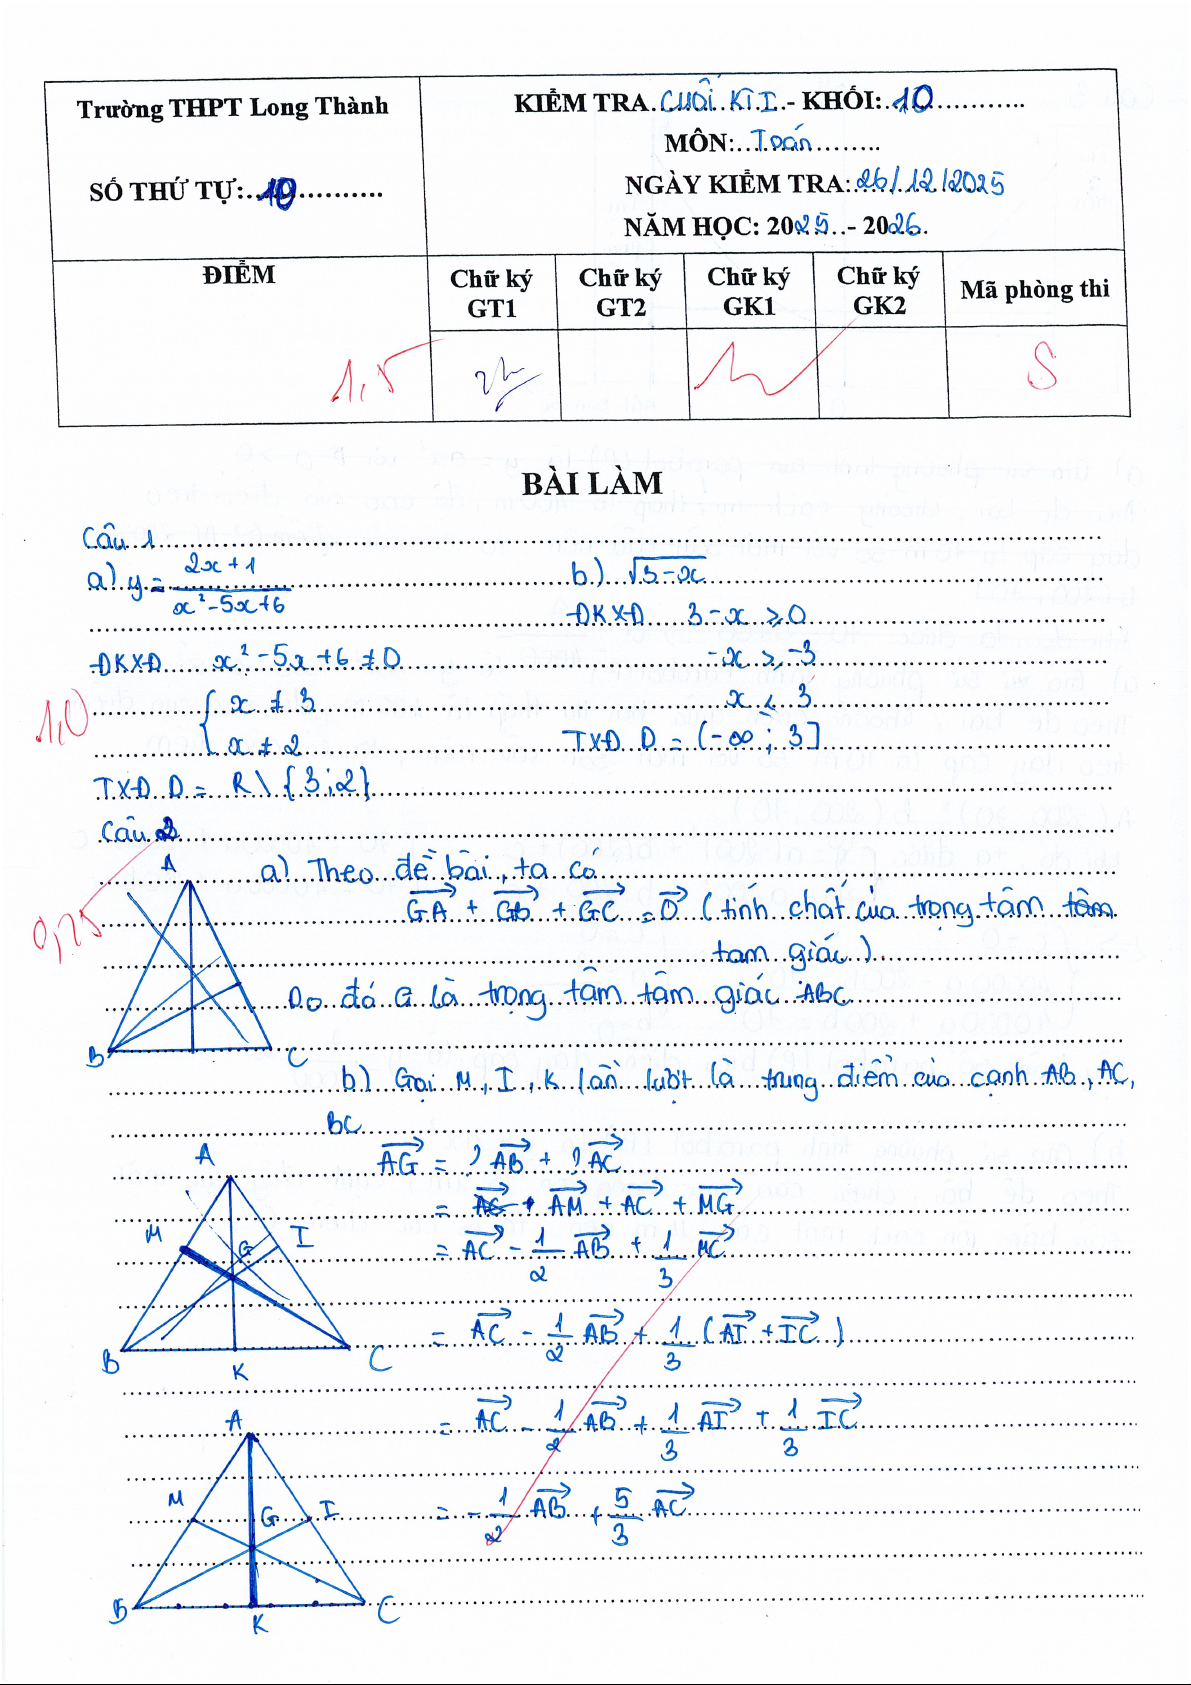 Trường THPT Long Thành
SỐ THỨ TỰ: 10
KIỂM TRA CUỐI KÌ I - KHỐI: 10
MÔN: Toán
NGÀY KIỂM TRA: 26/12/2025
NĂM HỌC: 2025 - 2026
ĐIỂM
Chữ ký GT1
Chữ ký GT2
Chữ ký GK1
Chữ ký GK2
Mã phòng thi
1,5
S
BÀI LÀM
Câu 1
a) y = (2x+1)/(x²-5x+6)
b) √(3-x)
ĐKXĐ 3-x ≥ 0
ĐKXĐ x²-5x+6 ≠ 0
-x ≥ -3
1,0
{ x ≠ 3
x ≤ 3
x ≠ 2
TXĐ D = (-∞; 3]
TXĐ D = R\{3;2}
Câu 2
0,75
A
B
C
a) Theo đề bài, ta có
GA + Gb + GC = 0 (tính chất của trọng tâm tâm
tam giác)
Do đó G là trọng tâm tâm giác ABC
b) Gọi M, I, K lần lượt là trung điểm của cạnh AB, AC,
BC
AG = ? AB + ? AC
= AG + AM + AC + MG
= AC - 1/2 AB + 1/3 MC
= AC - 1/2 AB + 1/3 (AI + IC)
= AC - 1/2 AB + 1/3 AI + 1/3 IC
= -1/2 AB + 5/3 AC
A
M
I
G
B
K
C
A
M
G
I
B
K
C